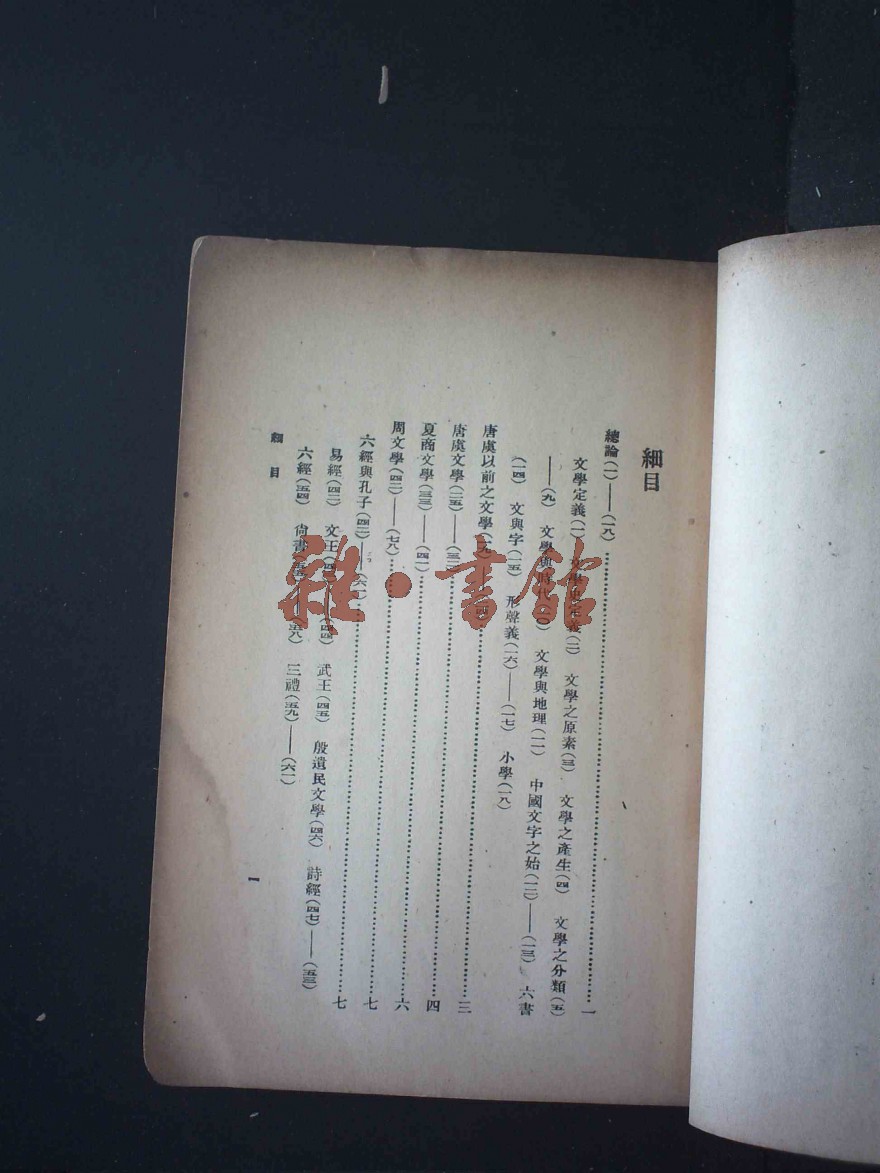 細目
總論(一)——(一八)………一
文學定義(一) 文學史定義(二) 文學之原素(三) 文學之產生(四) 文學之分類(五)
——(九) 文學與時代(一〇) 文學與地理(一一) 中國文字之始(一二)——(一三) 六書
(一四) 文與字(一五) 形聲義(一六)——(一七) 小學(一八)
唐虞以前之文學(一九)——………三
唐虞文學(二五)——………四
夏商文學(三三)——(四一)………六
周文學(四二)——(七八)………七
六經與孔子(四二)——(六一)………七
易經(四二) 文王——(四四) 武王(四五) 殷遺民文學(四六) 詩經(四七)——(五三)
六經(五四) 尙書(五五)——(五八) 三禮(五九)——(六一)
細目
一
雜·書館